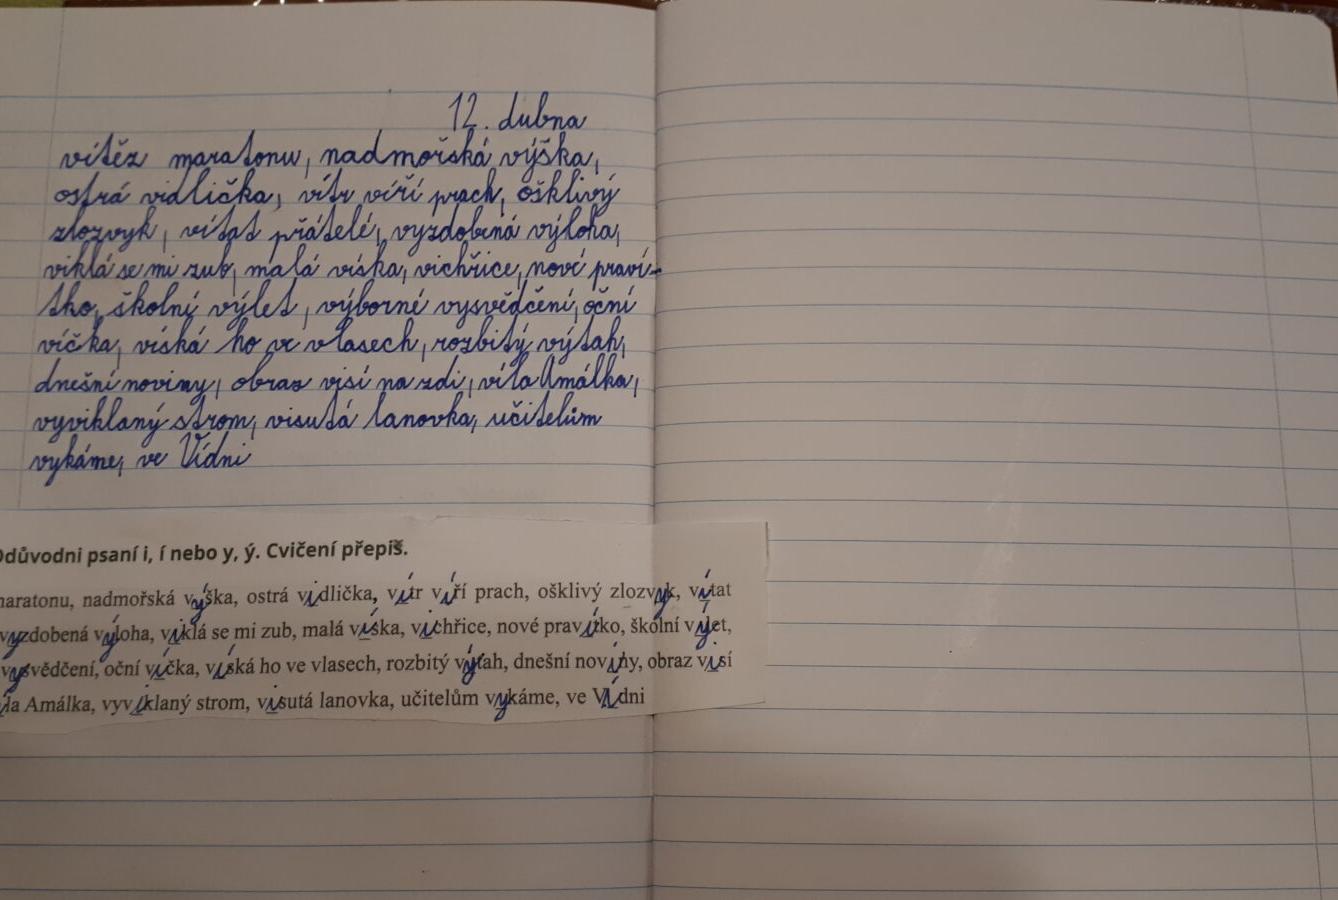 12. dubna
vítěz maratonu, nadmořská výška,
ostrá vidlička, vítr víří prach, ošklivý
zlozvyk, vítat přátelé, vyzdobená výloha,
viklá se mi zub, malá víska, vichřice, nové praví-
tko, školní výlet, výborné vysvědčení, oční
víčka, víská ho ve vlasech, rozbitý výtah,
dnešní noviny, obraz visí na zdi, víla Amálka,
vyviklaný strom, visutá lanovka, učitelům
vykáme, ve Vídni
Odůvodni psaní i, í nebo y, ý. Cvičení přepiš.
maratonu, nadmořská výška, ostrá vidlička, vítr víří prach, ošklivý zlozvyk, vítat
vyzdobená výloha, viklá se mi zub, malá víska, vichřice, nové pravítko, školní výlet,
vysvědčení, oční víčka, víská ho ve vlasech, rozbitý výtah, dnešní noviny, obraz visí
íla Amálka, vyviklaný strom, visutá lanovka, učitelům vykáme, ve Vídni